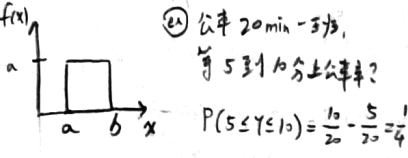 f(x)
a
a b x
ex 公車 20 min 一班,
等 5 到 10 分上公車率?
P(5≤Y≤10) = 10/20 - 5/20 = 1/4